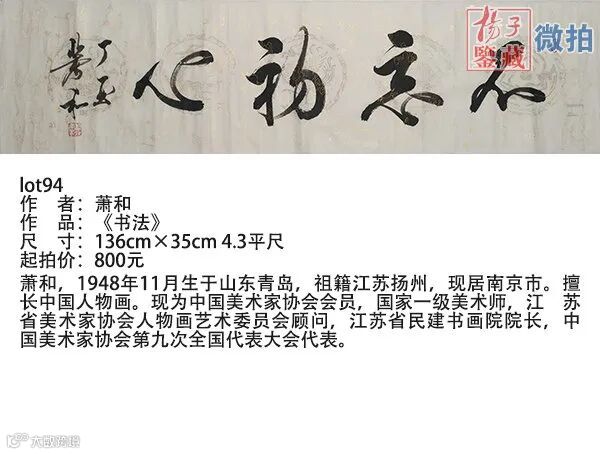 不忘初心
丁酉
萧和
扬子
鉴藏
微拍
lot94
作 者：萧和
作 品：《书法》
尺 寸：136cm×35cm 4.3平尺
起拍价：800元
萧和，1948年11月生于山东青岛，祖籍江苏扬州，现居南京市。擅
长中国人物画。现为中国美术家协会会员，国家一级美术师，江 苏
省美术家协会人物画艺术委员会顾问，江苏省民建书画院院长，中
国美术家协会第九次全国代表大会代表。